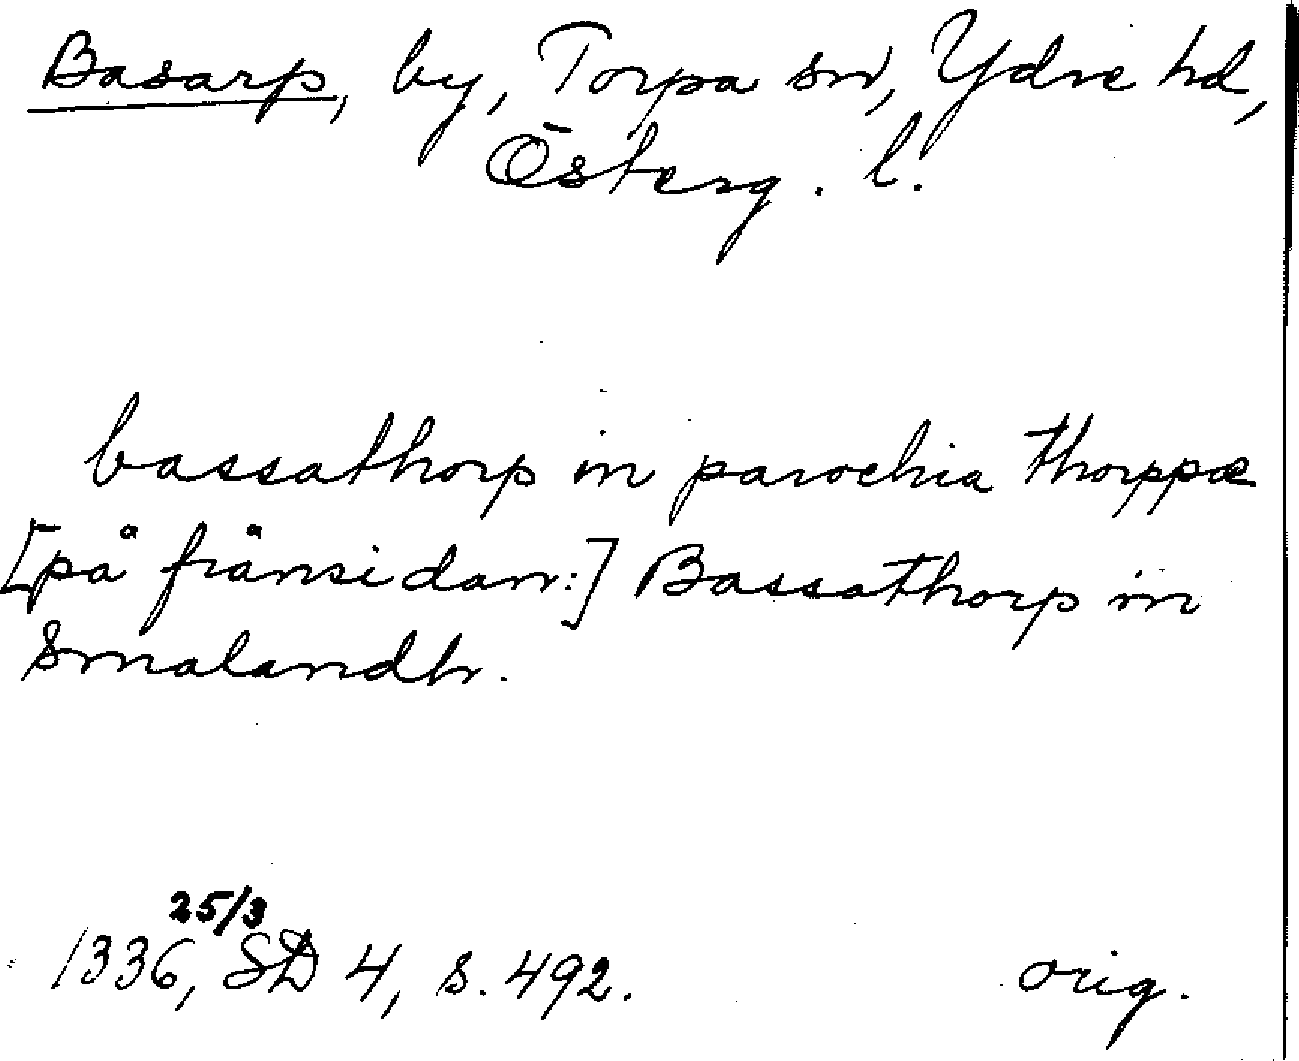 Basarp, by, Torpa sn, Ydre hd,
Österg. l.
bassathorp in parochia thorppæ
[på frånsidan:] Bassathorp in
Smalandh.
25/3
1336, SD 4, s. 492. orig.